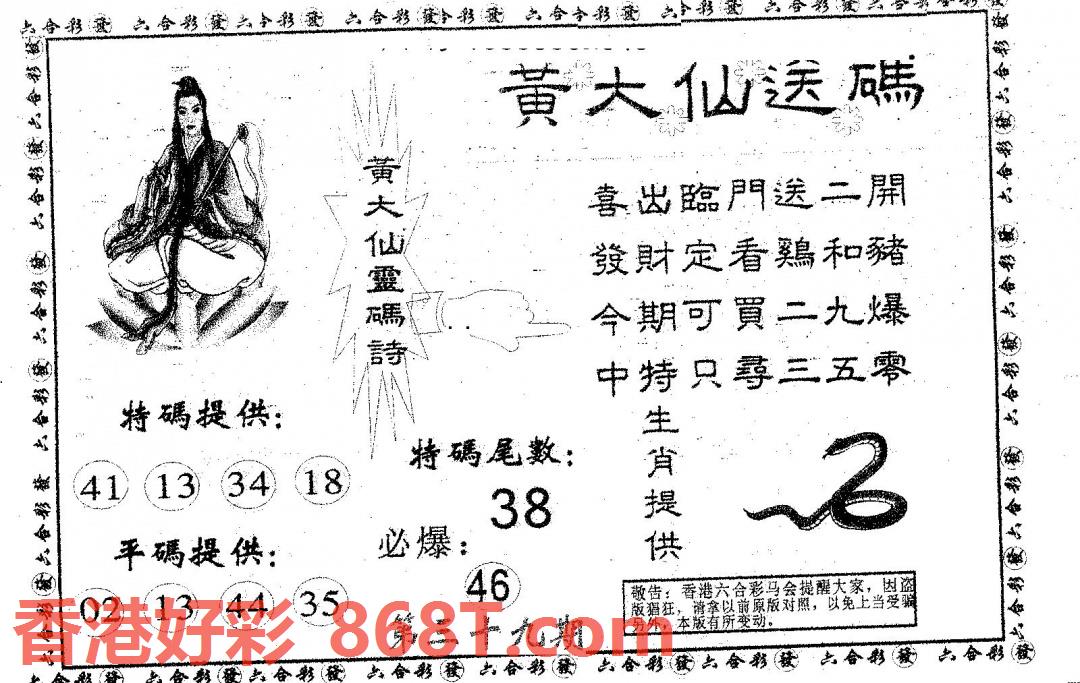 六合彩發六合彩發六合彩發六合彩發六合彩發六合彩發
黃大仙送碼
黃大仙靈碼詩
喜出臨門送二開
發財定看鷄和豬
今期可買二九爆
中特只尋三五零
特碼提供：
41 13 34 18
平碼提供：
02 13 44 35
特碼尾數：
38
必爆：
46
生肖提供
敬告：香港六合彩马会提醒大家，因盗
版猖狂，请拿以前原版对照，以免上当受骗
另外：本版有所变动。
香港好彩 868T.com
六合彩發六合彩發六合彩發六合彩發六合彩發六合彩發